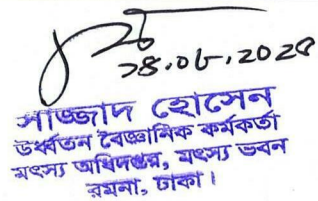 ১৪.০৮.২০২৫
সাজ্জাদ হোসেন
উর্ধ্বতন বৈজ্ঞানিক কর্মকর্তা
মৎস্য অধিদপ্তর, মৎস্য ভবন
রমনা, ঢাকা।